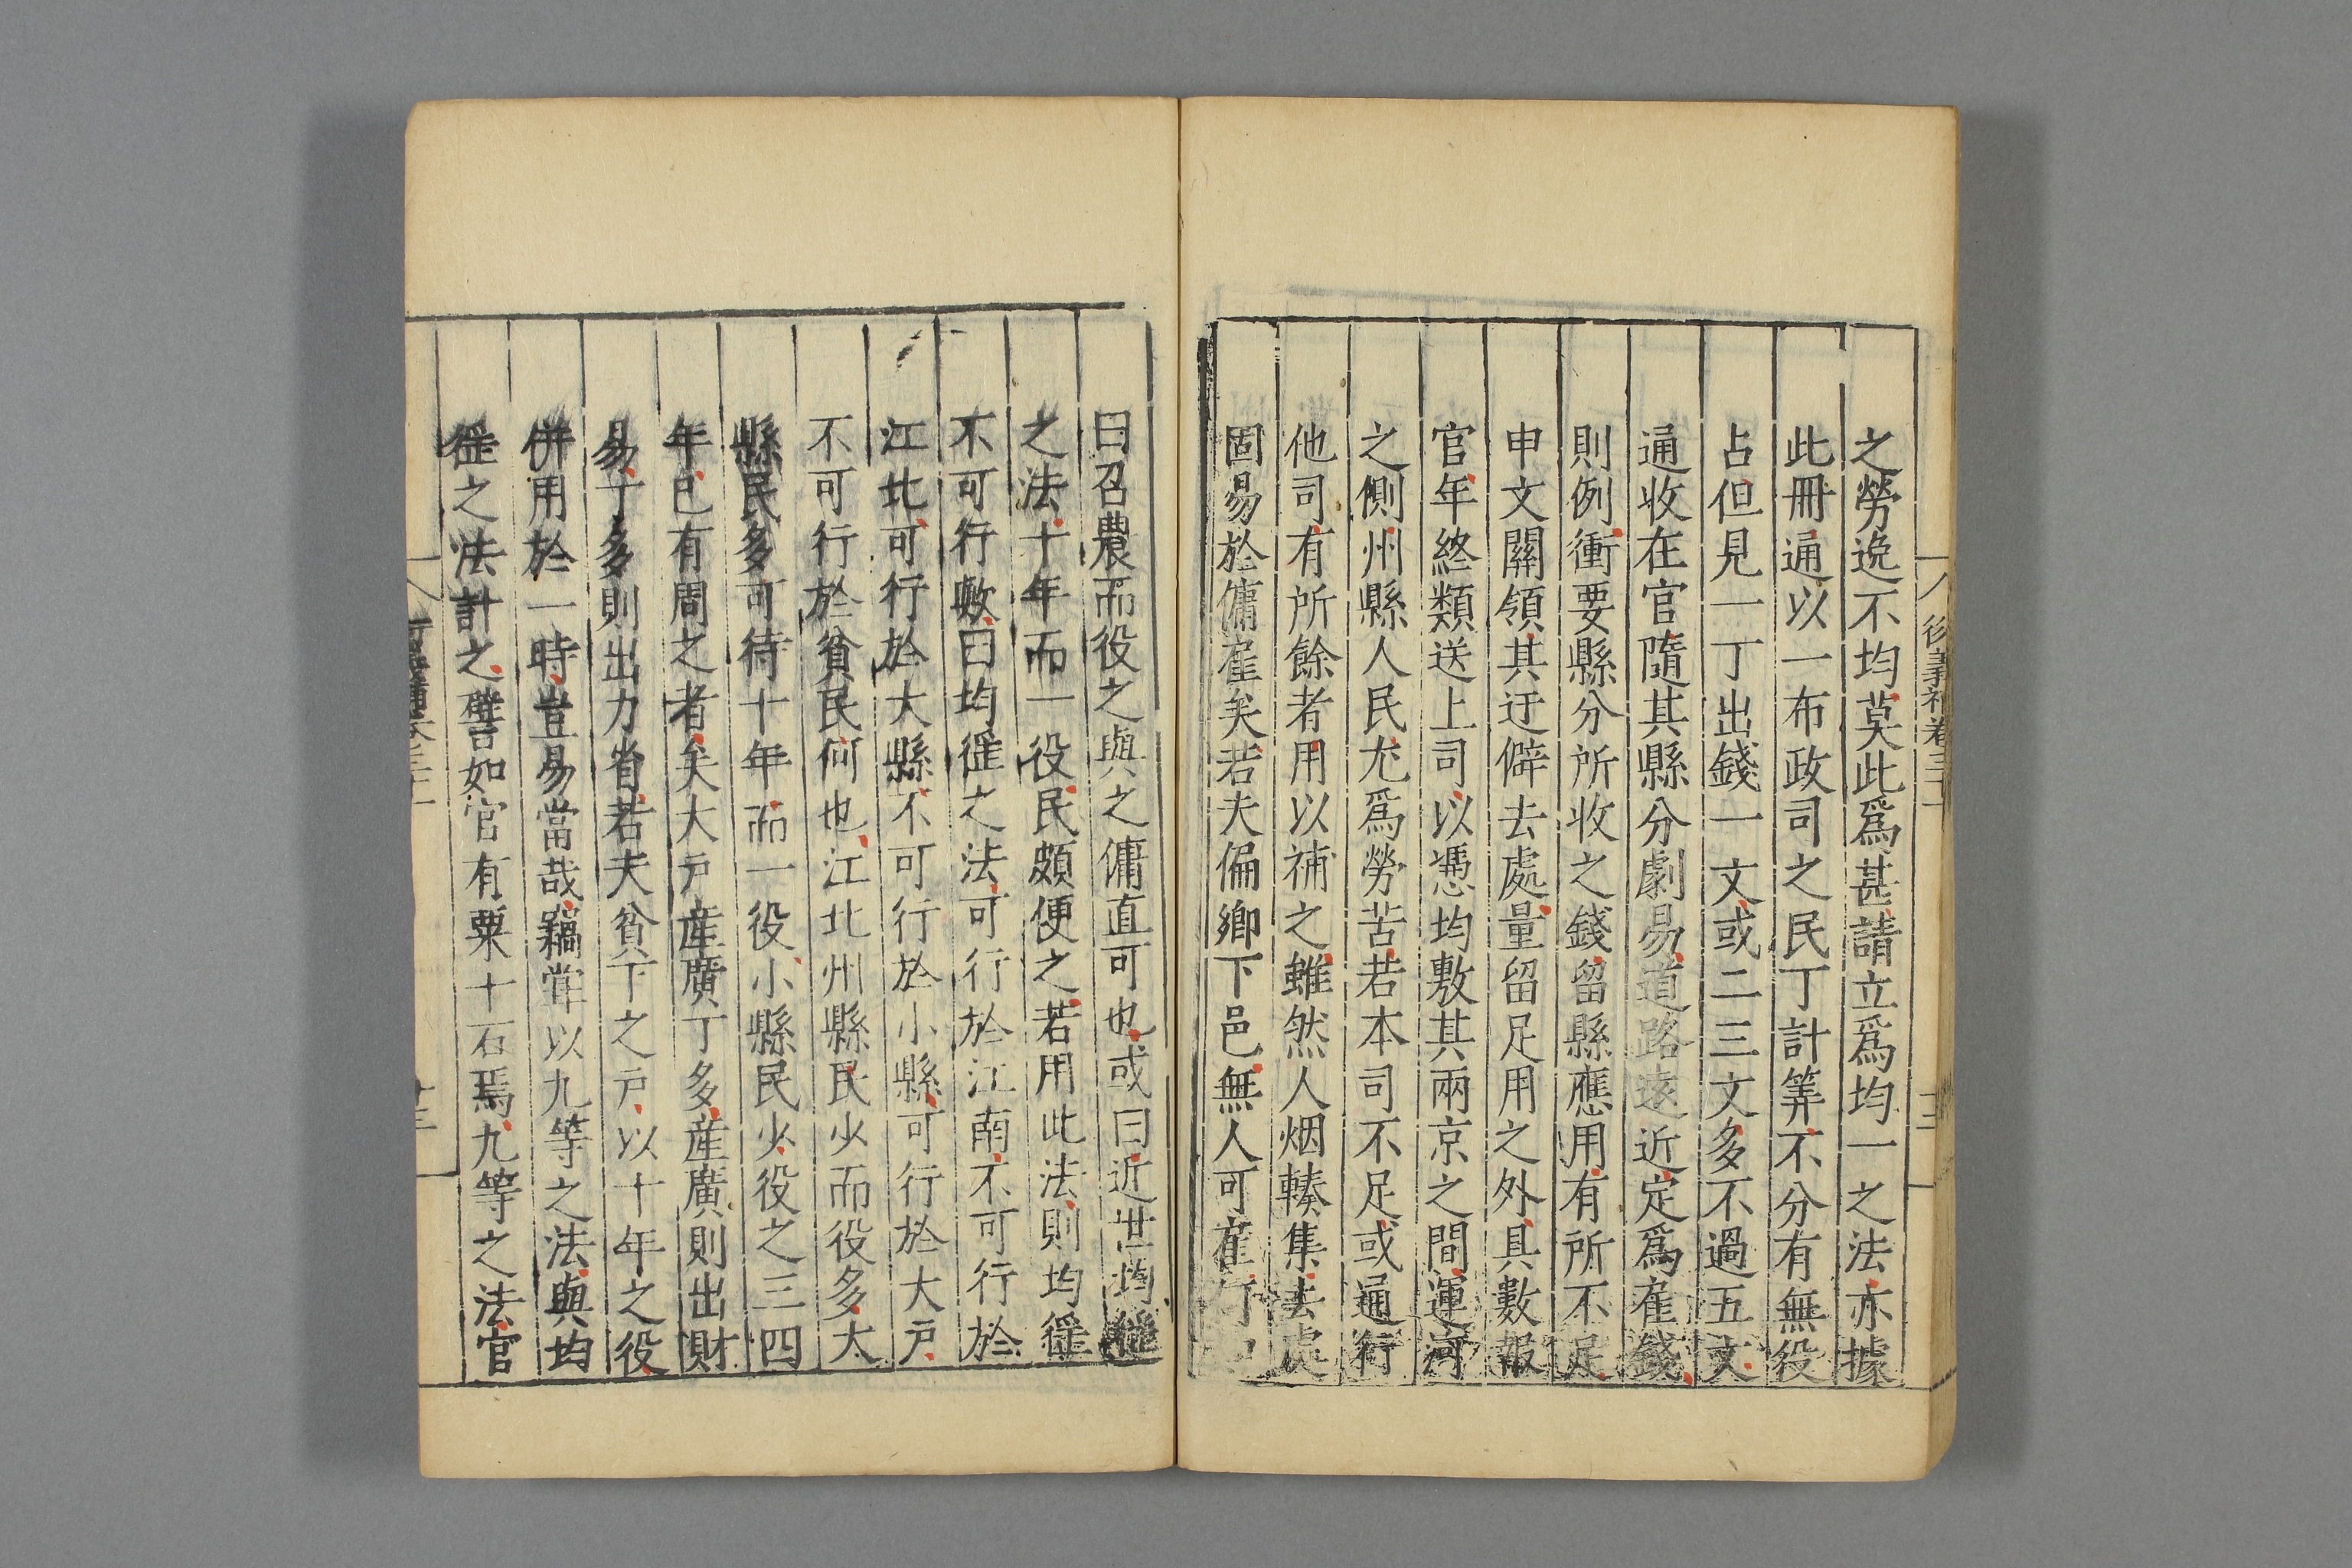 之勞逸不均莫此爲甚請立爲均一之法亦據
此冊通以一布政司之民丁計筭不分有無役
占但見一丁出錢一文或二三文多不過五文
通收在官隨其縣分劇易道路遠近定爲雇錢
則例衝要縣分所收之錢留縣應用有所不足
申文關領其迂僻去處量留足用之外具數報
官年終類送上司以憑均敷其兩京之間運河
之側州縣人民尤爲勞苦若本司不足或通行
他司有所餘者用以補之雖然人烟輳集去處
固易於傭雇矣若夫偏鄉下邑無人可雇
曰召農而役之與之傭直可也或曰近世均徭
之法十年而一役民頗便之若用此法則均徭
不可行歟曰均徭之法可行於江南不可行於
江北可行於大縣不可行於小縣可行於大戸
不可行於貧民何也江北州縣民少而役多大
縣民多可待十年而一役小縣民少役之三四
年已有周之者矣大戸産廣丁多産廣則出財
易丁多則出力省若夫貧下之戸以十年之役
併用於一時豈易當哉竊嘗以九等之法與均
徭之法計之譬如官有粟十石焉九等之法官